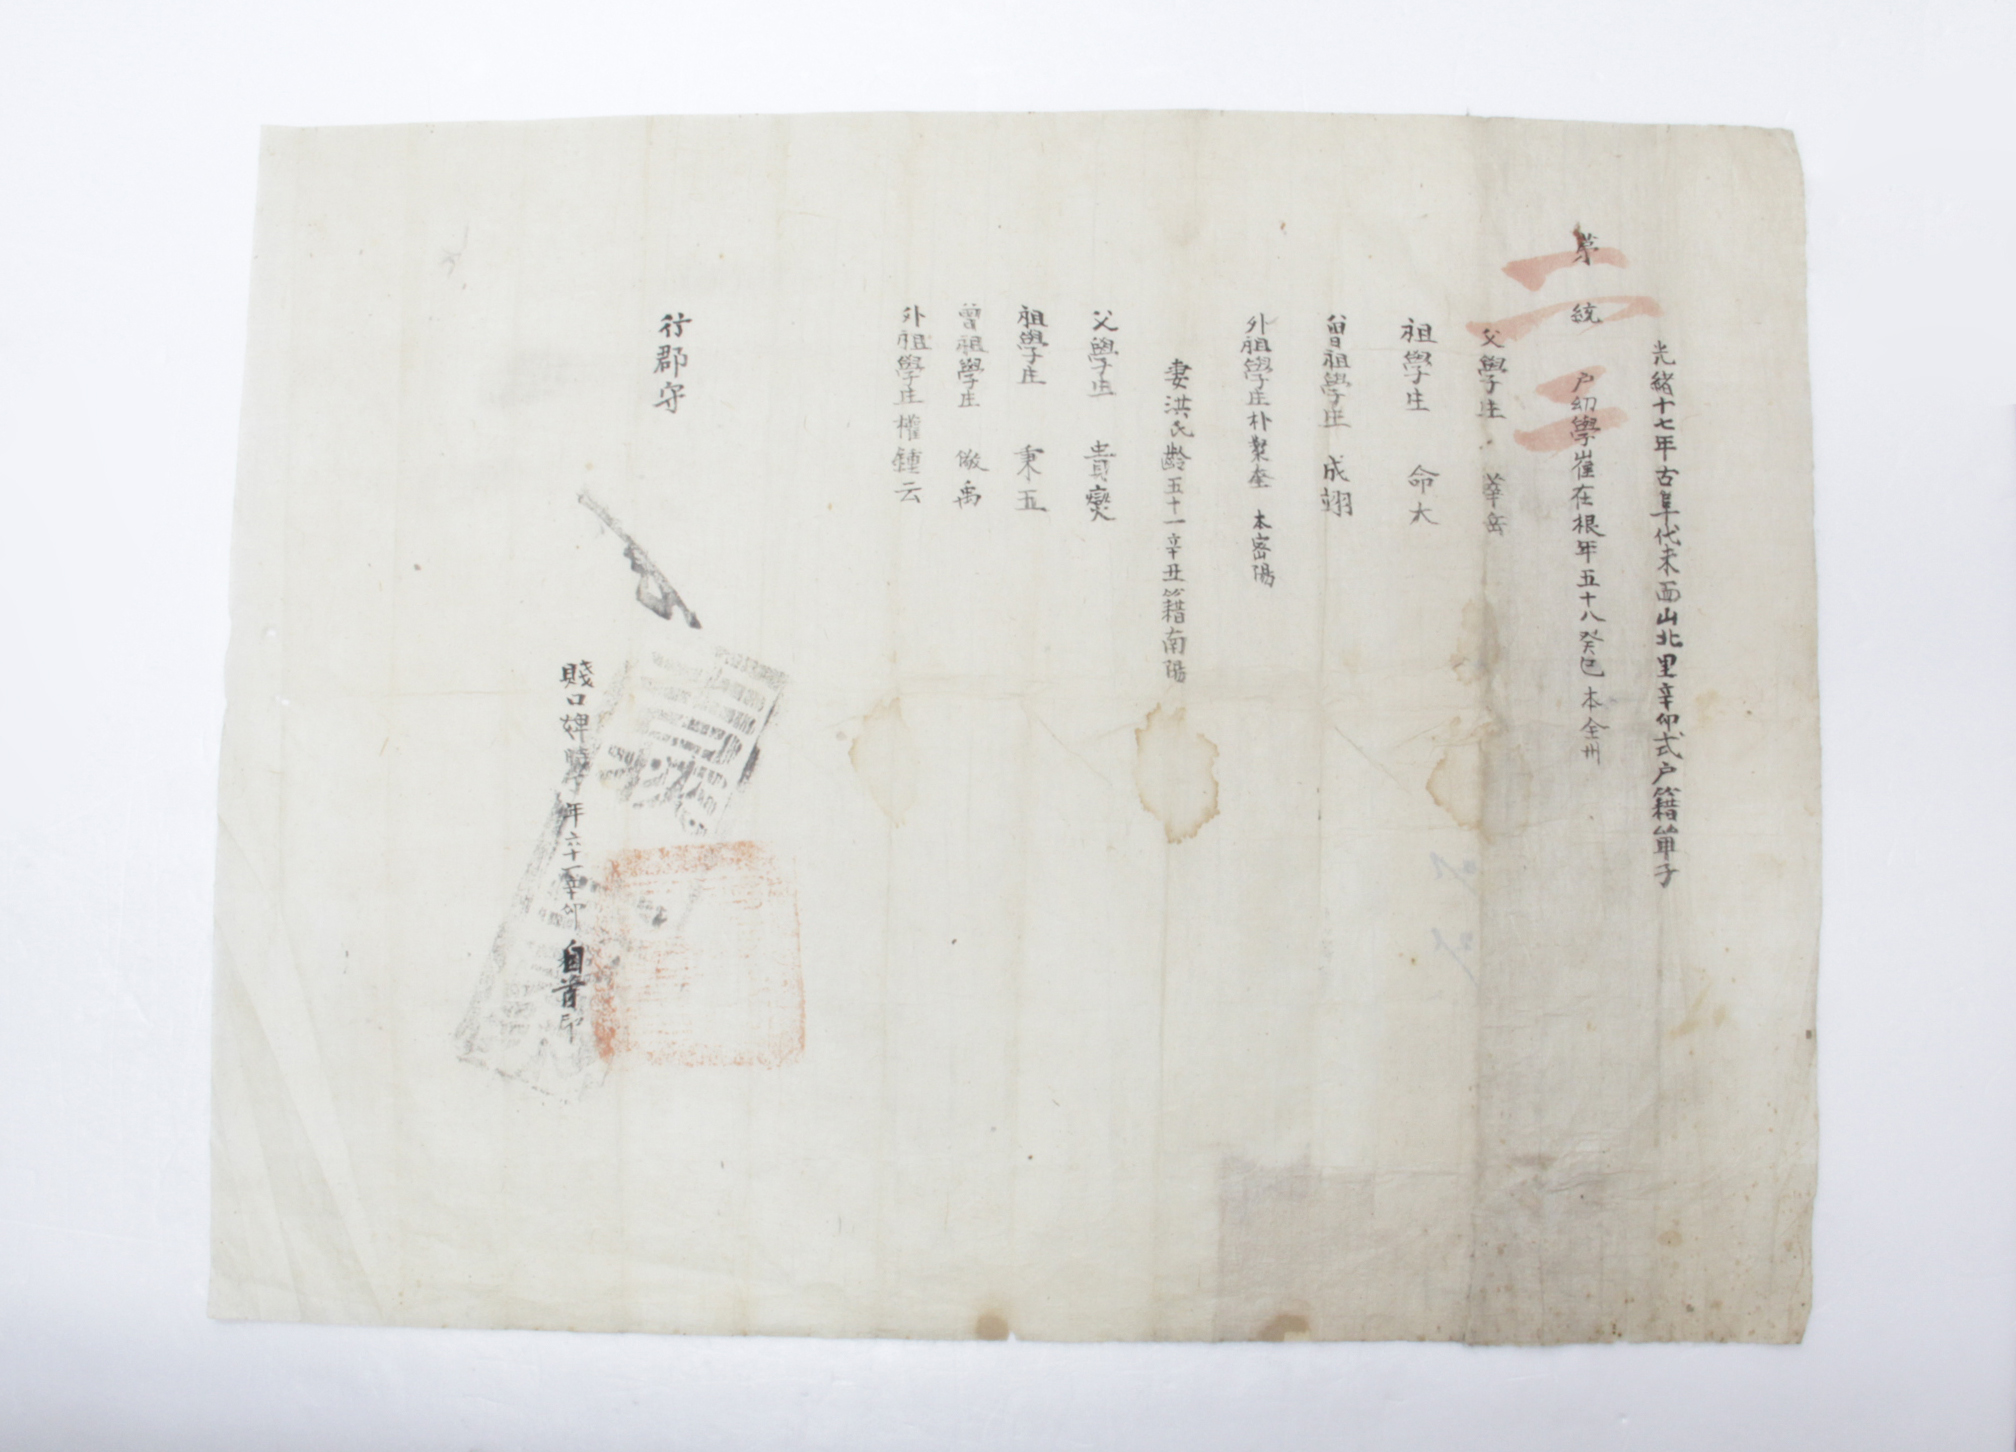 光緖十七年古阜代末面山北里辛卯式戶籍單子
第二統三戶幼學崔在根年五十八癸巳本全州
父學生 華岳
祖學生 命大
曾祖學生 成翊
外祖學生朴聚奎 本密陽
妻洪氏齡五十一辛丑籍南陽
父學生 貴燮
祖學生 秉五
曾祖學生 儆禹
外祖學生權鍾云
行郡守
賤口婢時 年六十一辛卯 自首印